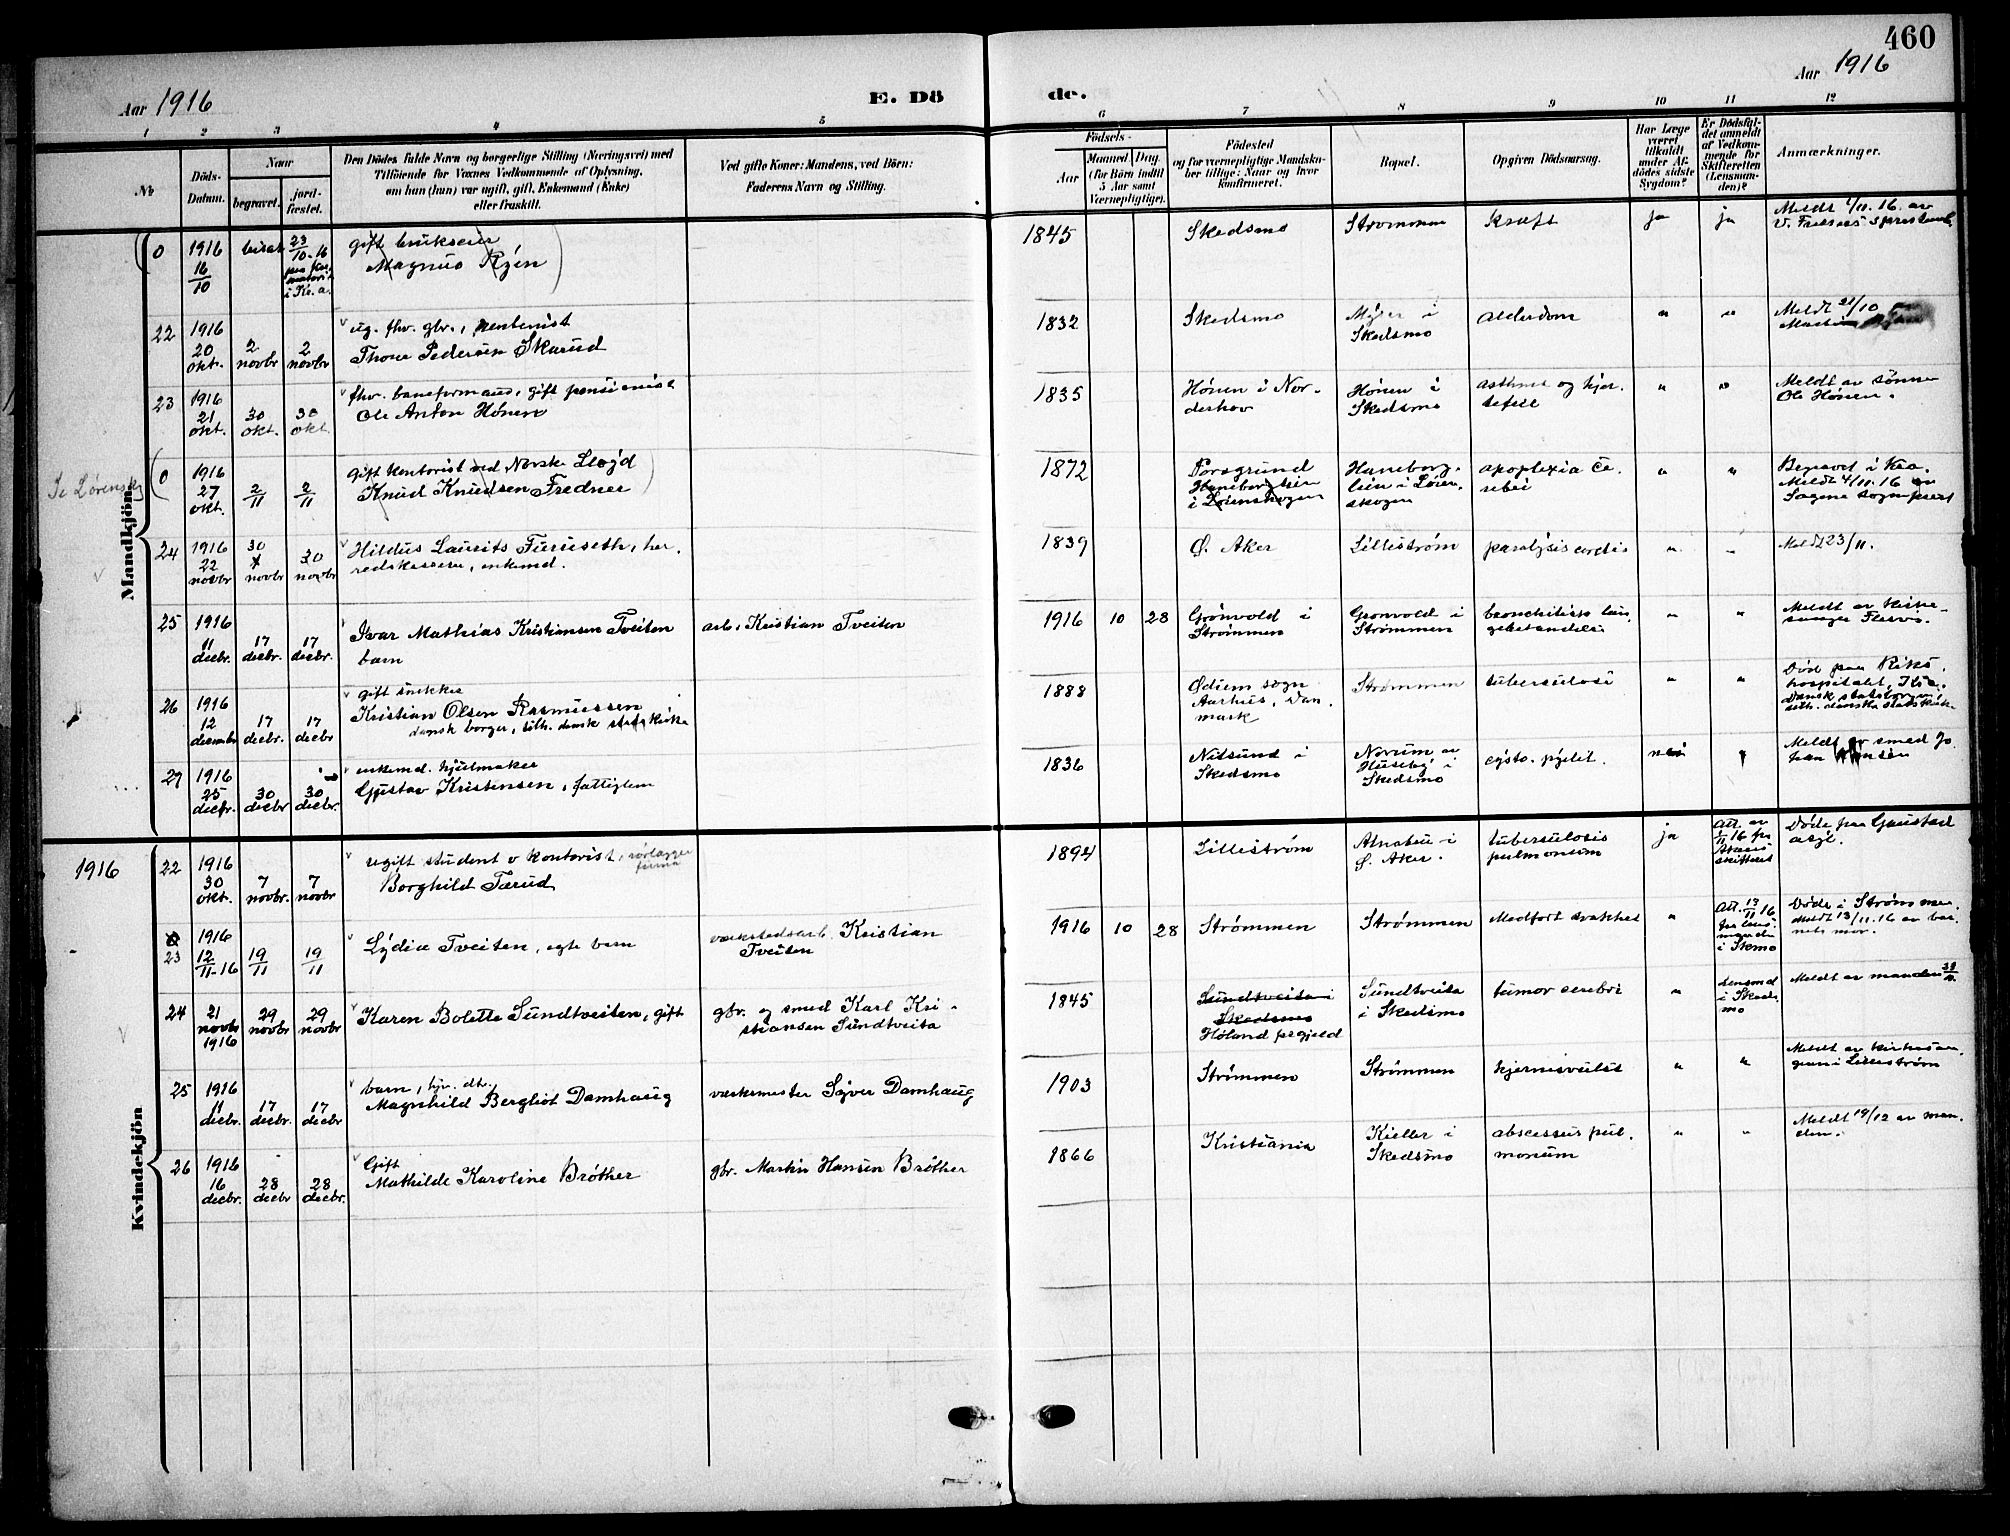 460
Aar 1916
Aar 1916
E. Dö
de.
1 2 3 4 5
6 7 8 9 10 11 12
No
Döds-
Datum.
Naar
begravet.
jord-
fæstet.
Den Dödes fulde Navn og borgerlige Stilling (Næringsvei) med
Tilföiende for Voxnes Vedkommende af Oplysning,
om han (hun) var ugift, gift, Enkemand (Enke)
eller fraskilt.
Ved gifte Koner: Mandens, ved Börn:
Faderens Navn og Stilling.
Födsels-
Aar
Maaned
(for Börn indtil
5 Aar samt
Værnepligtige).
Dag.
Födested
og for værnepligtige Mandskaber
tillige: Naar og hvor
konfirmeret.
Bopæl.
Opgiven Dödsaarsag.
Har Læge
været
tilkaldt
under Afdödes
sidste
Sygdom?
Er Dödsfaldet
anmeldt
af Vedkommende
for
Skifteretten
(Lensmanden)?
Anmærkninger.
Mandkjön
0 1916 16/10 23/10-16
gift brukseier
Magnus Kjén
1845 Skedsmo Strømmen kræft ja ja
22 1916 20 okt. 2 novbr 2 novbr
ug. fhv. gbr.,
Thore Pedersen Skarud
1832 Skedsmo Myrer i Skedsmo alderdom " " Meldt 21/10
23 1916 21 okt. 30 okt. 30 okt.
fhv. baneformand, gift pensionist
Ole Anton Hønen
1835 Hønen i Norderhov Hønen i Skedsmo asthma og hjertefeil " " Meldt av sønnen Ole Hønen.
Se Lørenskog
0 1916 27 okt. 2/11 2/11
gift kontorist ved Norske Lloyd
Knud Knudsen Fredner
1872 Porsgrund Haneborglien i Lørenskogen Haneborglien i Lørenskogen apoplexia cerebri " " Begravet i Kra. Meldt 4/11.16
24 1916 22 novbr 30 novbr 30 novbr
Hildus Laurits Furuseth, herredskasserer, enkemd.
1839 Ø. Aker Lillestrøm paralysis cordis " " Meldt 23/11.
25 1916 11 decbr. 17 decbr. 17 decbr.
Ivar Mathias Kristiansen Tveiten
barn
arb. Kristian Tveiten
1916 10 28 Grønvold i Strømmen Grønvold i Strømmen " " Meldt av kirkesanger
26 1916 12 decembr 17 decbr. 17 decbr
gift snekker
Kristian Olsen Rasmussen
dansk borger, tilh. dansk statskirke
1888 Ødum sogn Aarhus, Danmark Strømmen tuberculose " " Død paa Rikshospitalet, Kra. Dansk statsborger, tilh. danske statskirke.
27 1916 25 decbr. 30 decbr 30 decbr.
enkemd. hjulmaker
Gustav Kristensen, fattiglem
1836 Nitsund i Skedsmo Norum av Huseby i Skedsmo cysto-pyelit. nei " Meldt av smed Johan
Kvindekjön
1916
22 1916 30 okt. 7 novbr. 7 novbr
ugift student o kontorist, rørlægger
firma
Borghild Tærud
1894 Lillestrøm Alnabru i Ø. Aker. tuberculosis pulmonum ja Døde paa Gaustad asyl.
23 1916 12/11-16 19/11 19/11
Lydia Tveiten, egte barn
værkstedsarb. Kristian Tveiten
1916 10 28 Strømmen Strømmen Medfødt svakhet " Att. 13/11 16 fra lensmanden i Skmo Døde i Strømmen. Meldt 13/11.16 av barnets mor.
24 21 novbr 1916 29 novbr 29 novbr
Karen Bolette Sundtveiten, gift
gbr. og smed Karl Kristiansen Sundtveita
1845 Sundtveita i Skedsmo Høland prgjeld Sundtveita i Skedsmo tumor cerebri " Lensmd i Skedsmo Meldt av manden
25 1916 11 decbr. 17 decbr. 17 decbr
barn, hjv. dtr.
Magnhild Bergliot Damhaug
værkmester Syver Damhaug
1903 Strømmen Strømmen " " Meldt av kirkesangeren i Lillestrøm
26 1916 16 decbr. 28 decbr 28 decbr.
Gift
Mathilde Karoline Brøther
gbr. Martin Hansen Brøther
1866 Kristiania Kieller i Skedsmo abscessus pulmonum " " Meldt 19/12 av manden.